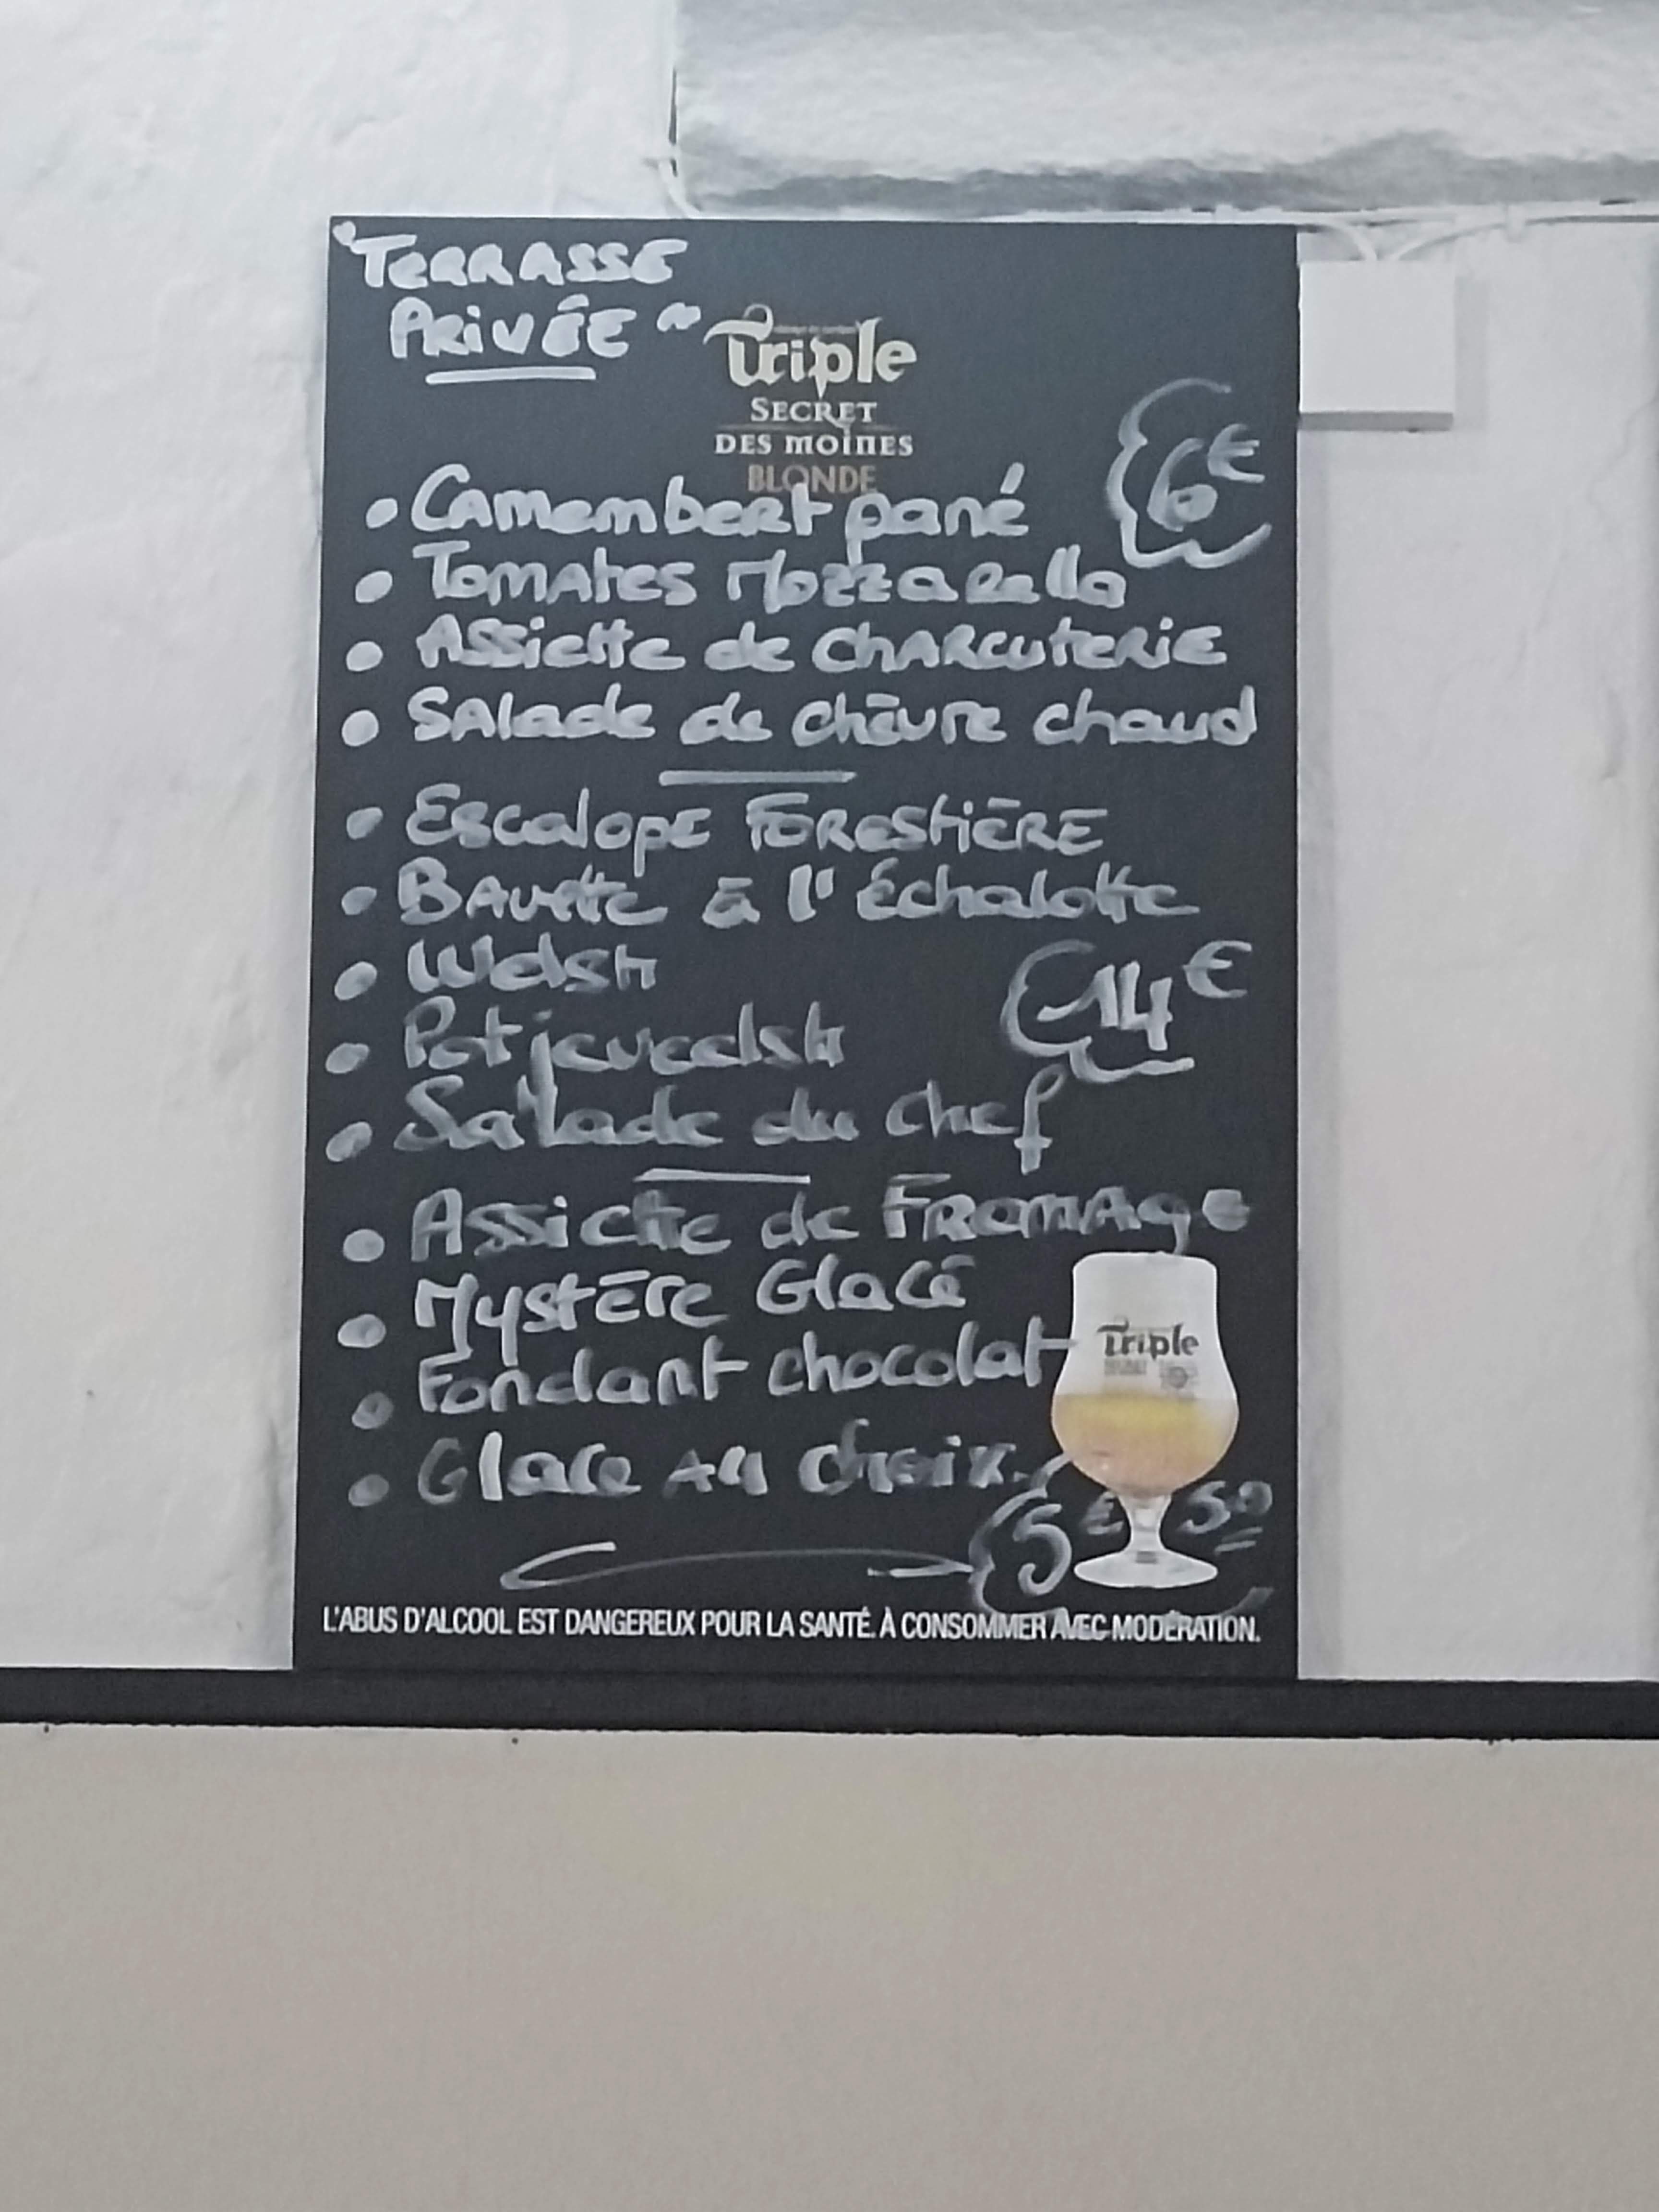 "TERRASSE
PRIVÉE"
Triple
SECRET
DES MOINES
BLONDE
6€
• Camembert pané
• Tomates Mozzarella
• Assiette de CHARCUTERIE
• Salade de chèvre chaud
• Escalope FORESTIÈRE
• Bavette à l'Échalotte
• Welsh
14€
• Potjevvelsh
• Salade du chef
• Assiette de FROMAGE
• Mystère Glacé
• Fondant chocolat
Triple
• Glace au choix
5€50
L'ABUS D'ALCOOL EST DANGEREUX POUR LA SANTÉ. À CONSOMMER AVEC MODÉRATION.